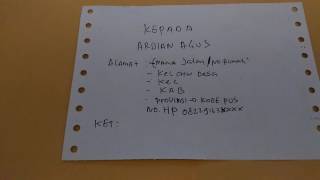 KEPADA
ARDIAN AGUS
ALAMAT (NAMA JALAN/NO RUMAH)
- KEL ATAU DESA
- KEC
- KAB
- PROVINSI - KODE POS
NO. HP
KET: